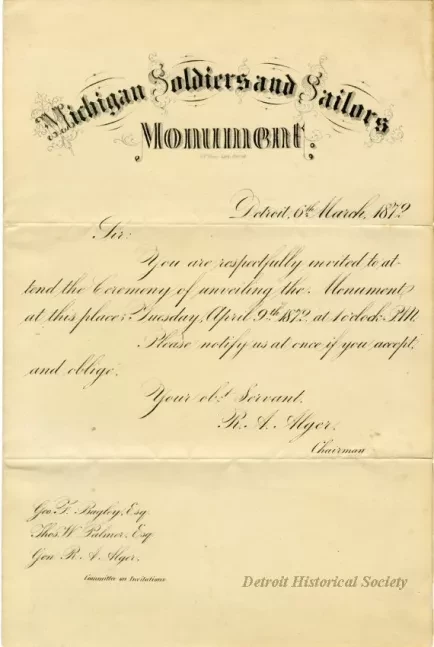 Michigan Soldiers and Sailors
Monument.
Detroit, 6th March, 1872
Sir:
You are respectfully invited to at
tend the Ceremony of unveiling the Monument,
at this place; Tuesday, April 9th 1872 at 1 o'clock P.M.
Please notify us at once if you accept,
and oblige.
Your obt Servant.
R. A. Alger,
Chairman
Geo. F. Bagley, Esq.
Thos. W. Palmer, Esq.
Gen. R. A. Alger.
Committee on Invitations
Detroit Historical Society